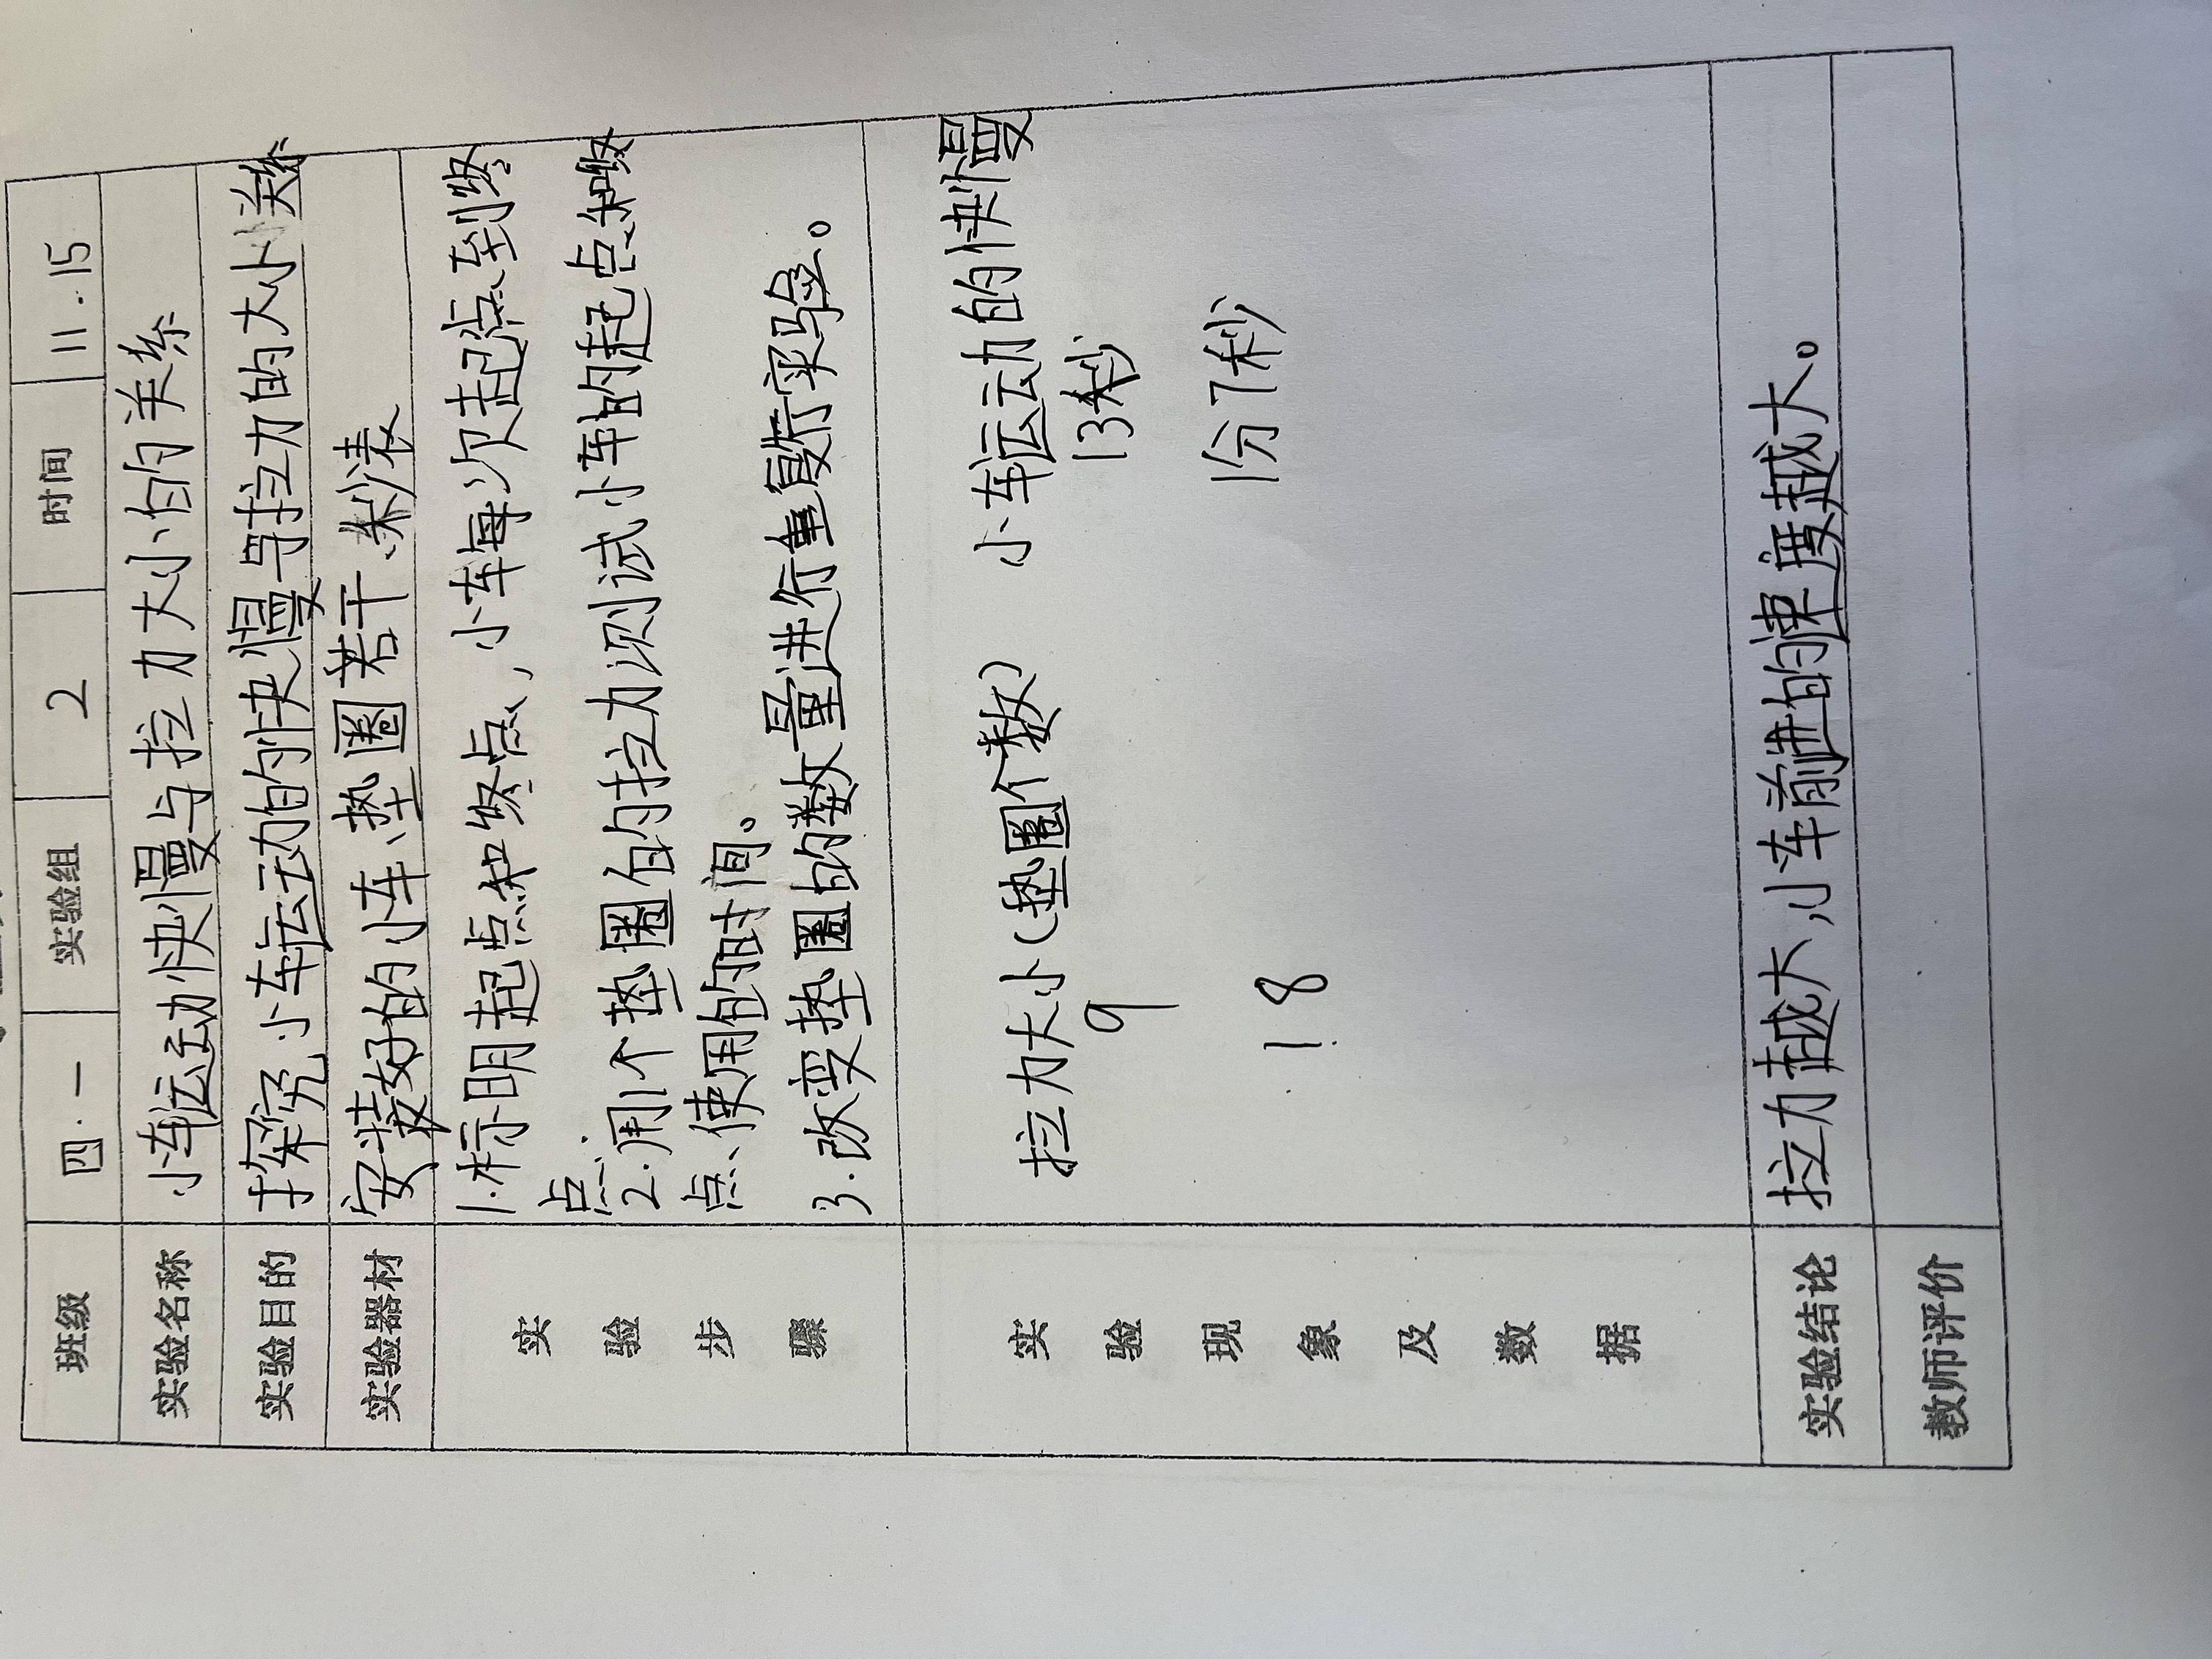 班级 四.一 实验组 2 时间 11.15
实验名称 小车运动快慢与拉力大小的关系
实验目的 探究小车运动的快慢与拉力的大小关系
实验器材 安装好的小车、垫圈若干、秒表
实验步骤
1.标明起点和终点,小车每次起点到终
点.
2.用1个垫圈的拉力测试小车的起点和终
点、使用的时间。
3.改变垫圈的数量进行重复实验。
实验现象及数据
拉力大小(垫圈个数) 小车运动的快慢
9 13秒
18 1分7秒
实验结论 拉力越大,小车前进的速度越大。
教师评价